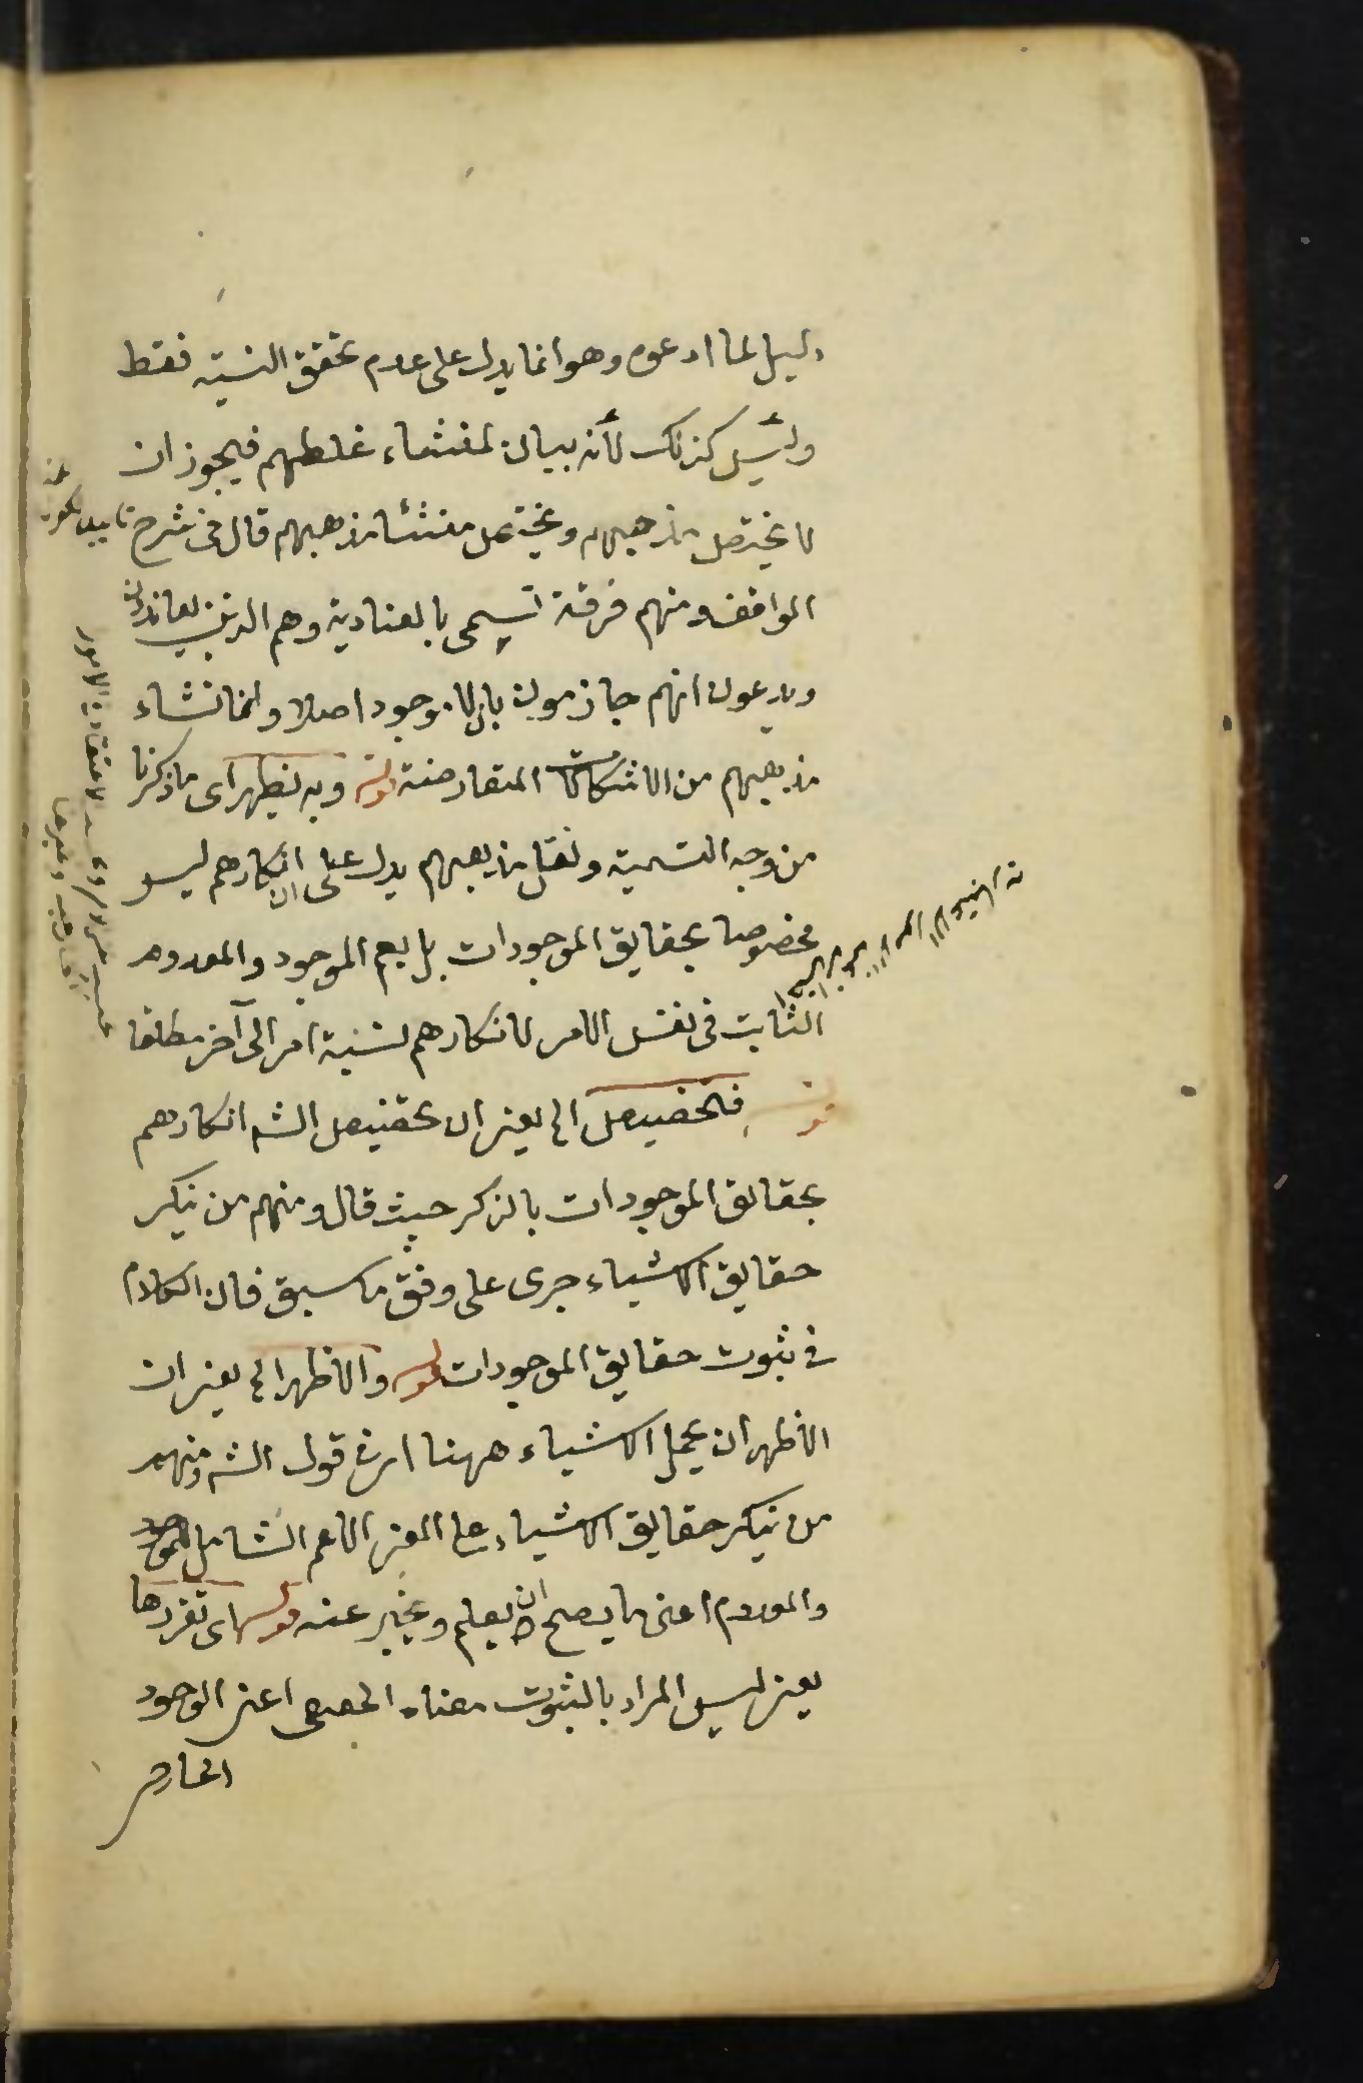 دليل لما ادعوه وهو انما يدل على عدم تحقق النسبة فقط
وليس كذلك لأنه بيان لمنشاء غلطهم فيجوز ان
لا يختص مذهبهم ويختص منشئا مذهبهم قال فى شرح
المواقف ومنهم فرقة تسمى بالعنادية وهم الذين يعاندون
ويدعون انهم جازمون بان لا موجود اصلا وانما نشاء
مذهبهم من الاشكالات المتعارضة قوله وبه يظهر اى ما ذكرنا
من وجه التسمية ونقل مذهبهم يدل على ان انكارهم ليس
مخصوصا بحقايق الموجودات بل يعم الموجود والمعدوم
الثابت فى نفس الامر لانكارهم نسبة امر الى آخر مطلقا
قوله فتخصيص الخ يعنى ان تخصيص الشه انكارهم
بحقايق الموجودات بالذكر حيث قال ومنهم من ينكر
حقايق الاشياء جرى على وفق ما سبق فان الكلام
فى ثبوت حقايق الموجودات قوله والاظهر الخ يعنى ان
الاظهر ان يحمل الاشياء ههنا اى فى قول الشه ومنهم
من ينكر حقايق الاشياء على المعنى الاعم الشامل للموجود
والمعدوم اعنى ما يصح ان يعلم ويخبر عنه قوله اى تقررها
يعنى ليس المراد بالثبوت معناه الحقيقى اعنى الوجود
الخارجى